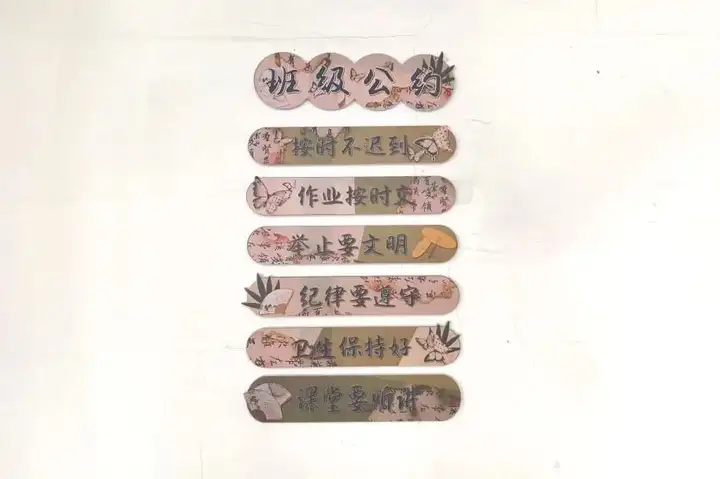 班级公约
按时不迟到
作业按时交
举止要文明
纪律要遵守
卫生保持好
课堂要听讲